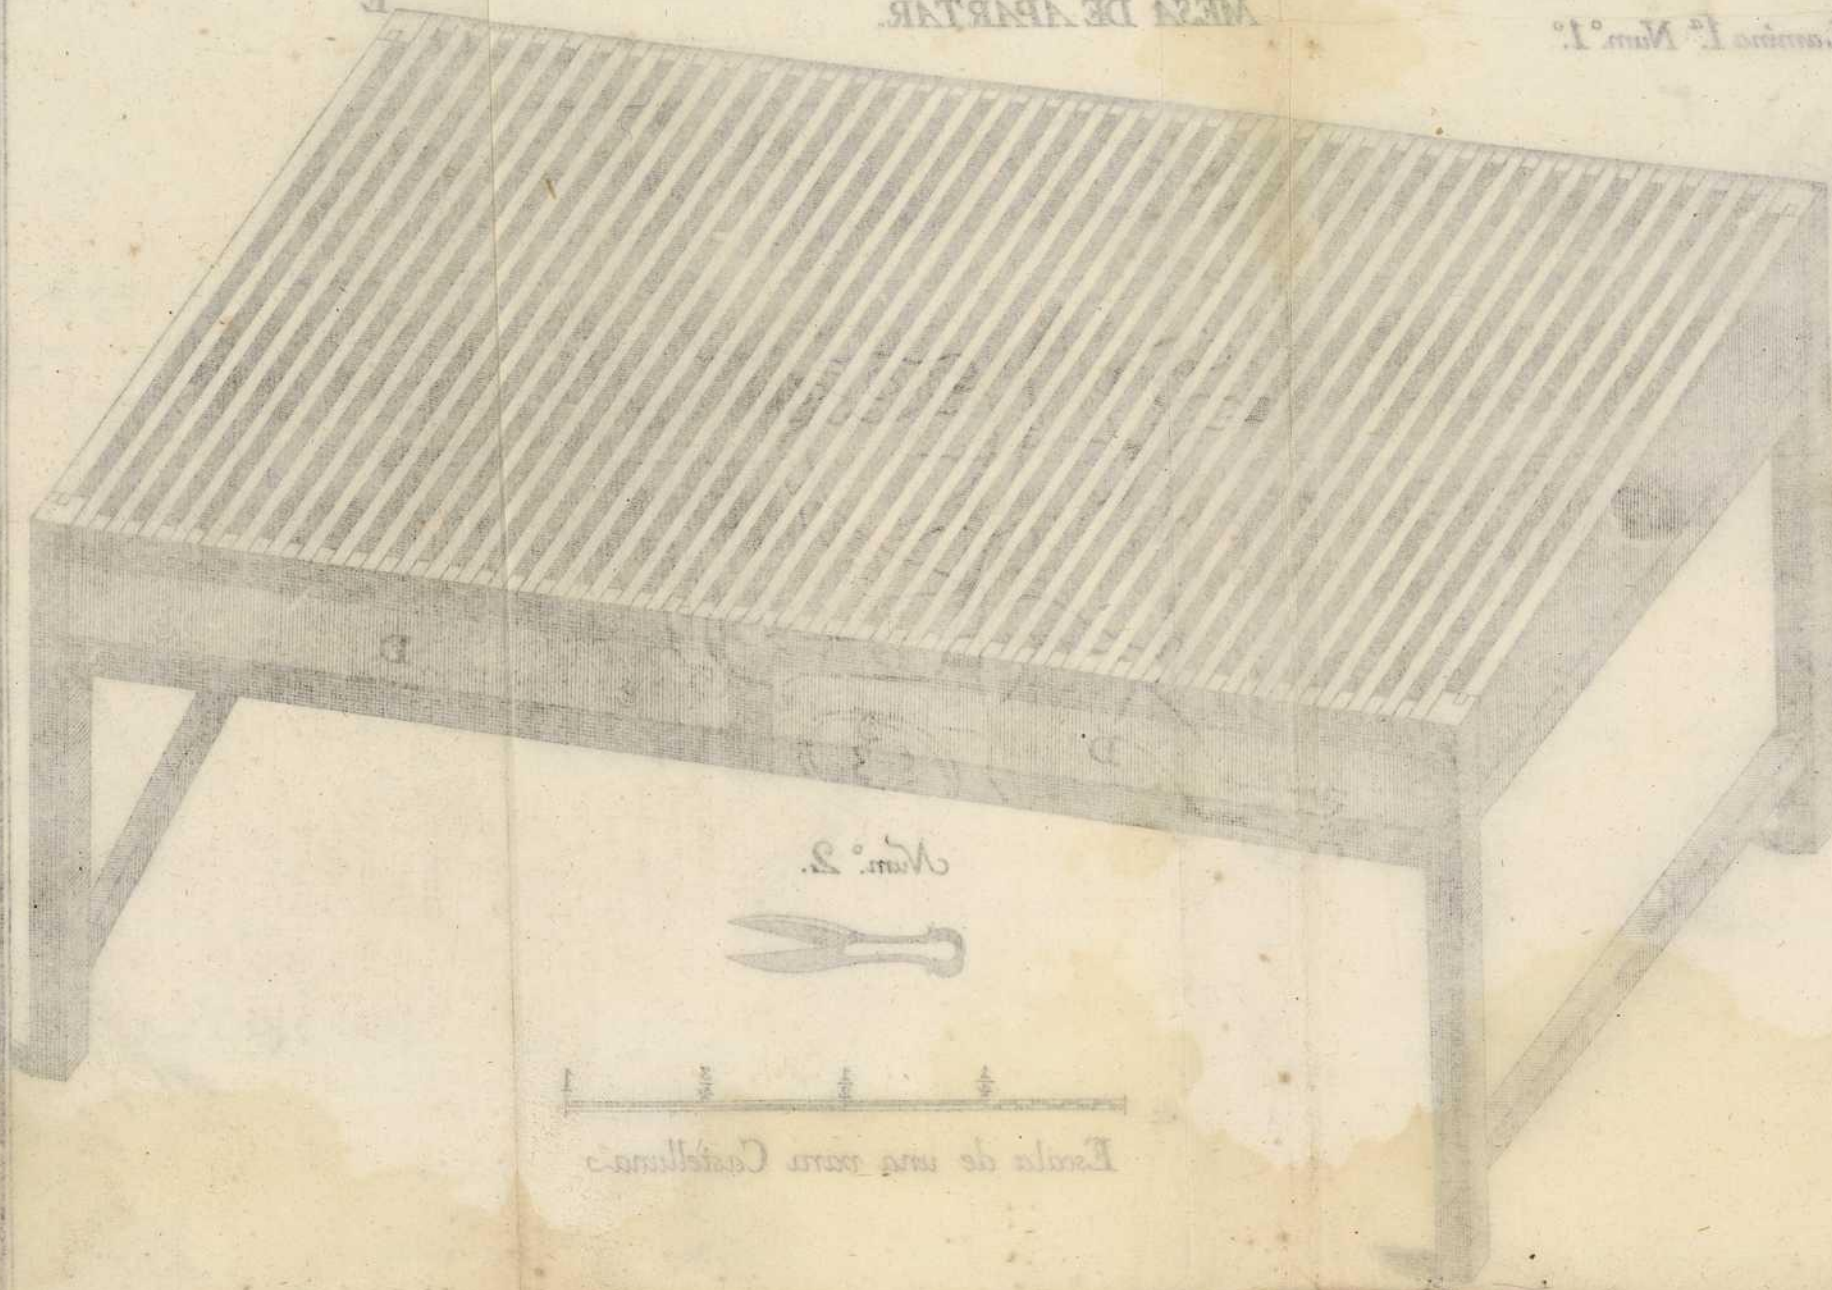 Lamina 1.ª Num.º 1.º
MESA DE APARTAR.
E
B
D
Num.º 2.
1/4 1/2 3/4 1
Escala de una vara Castellana